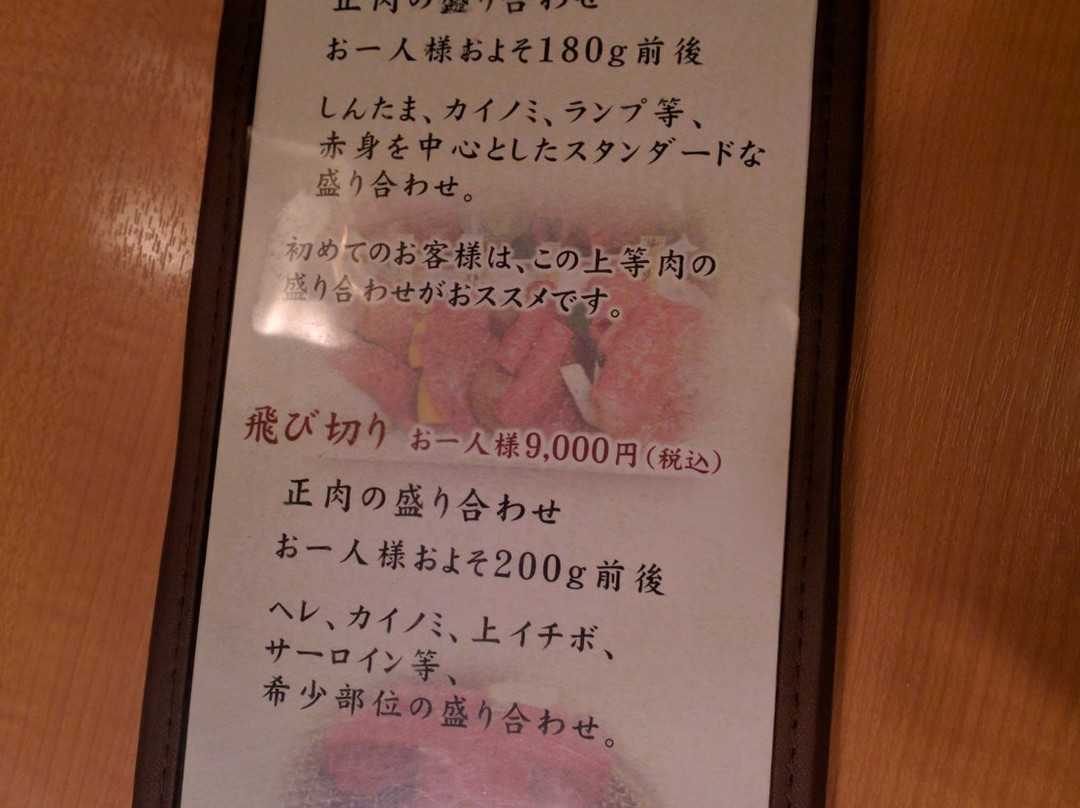 正肉の盛り合わせ
お一人様およそ180g前後
しんたま、カイノミ、ランプ等、
赤身を中心としたスタンダードな
盛り合わせ。
初めてのお客様は、この上等肉の
盛り合わせがおススメです。
飛び切り お一人様9,000円(税込)
正肉の盛り合わせ
お一人様およそ200g前後
ヘレ、カイノミ、上イチボ、
サーロイン等、
希少部位の盛り合わせ。